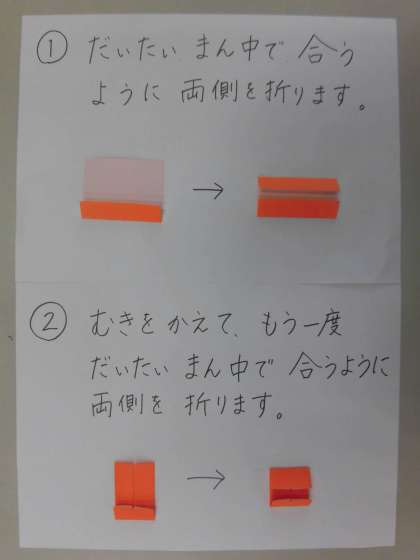 ① だいたい まん中で 合う
ように 両側を折ります。
→
② むきを かえて、もう一度
だいたい まん中で 合うように
両側を 折ります。
→